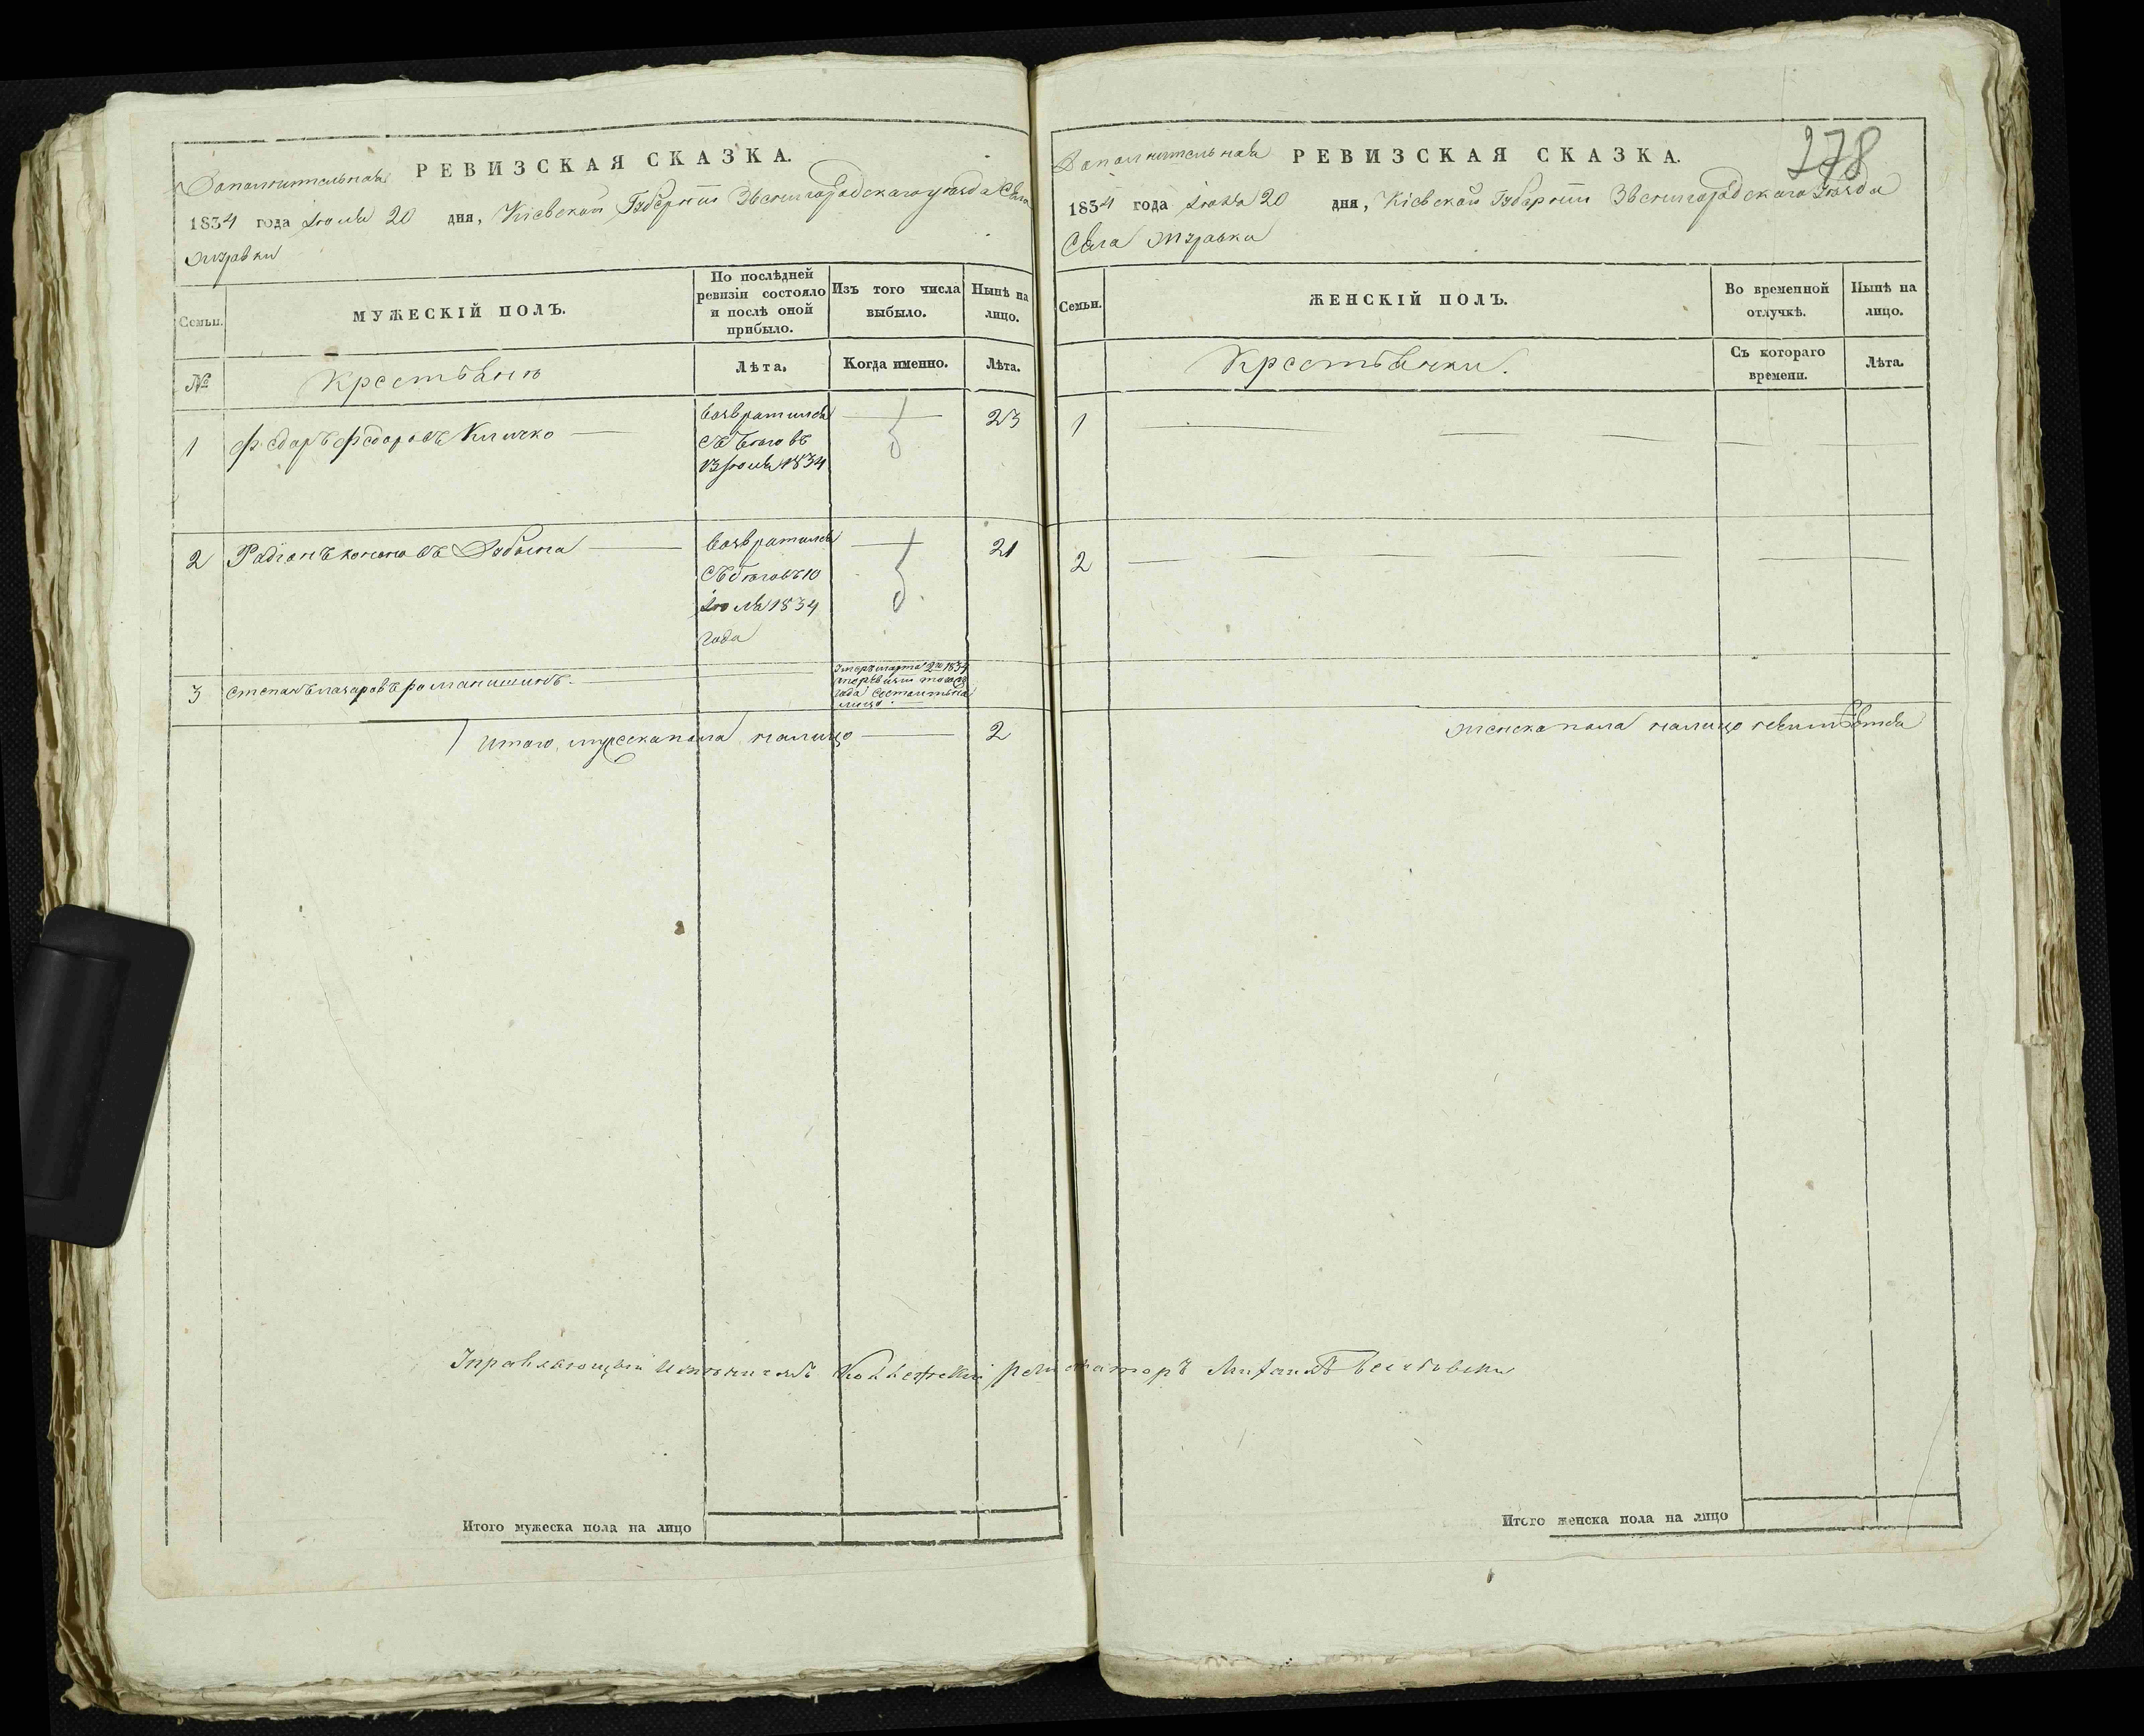 Дополнительная РЕВИЗСКАЯ СКАЗКА.
1834 года Іюля 20 дня, Кіевской Губерніи Звенигородскаго уѣзда Села
Журавки
Семьи.
МУЖЕСКІЙ ПОЛЪ.
По послѣдней ревизіи состояло и послѣ оной прибыло.
Изъ того числа выбыло.
Нынѣ на лицо.
№
Крестьянъ
Лѣта.
Когда именно.
Лѣта.
1 Федоръ Федоровъ Кличко
возвратился
съ бѣговъ
13 Іюля 1834
23
2 Радіонъ кононовъ
возвратился
съ бѣговъ 10
Іюля 1834
года
21
3 Степанъ лазаровъ романишинъ
1834
лицо
Итого мужеска пола налицо 2
Управляющій Имѣніемъ Коллежскій регистраторъ Михаилъ
Итого мужеска пола на лицо
278
Дополнительная РЕВИЗСКАЯ СКАЗКА.
1834 года Іюля 20 дня, Кіевской Губерніи Звенигородскаго Уѣзда
Села Журавки
Семьи.
ЖЕНСКІЙ ПОЛЪ.
Во временной отлучкѣ.
Нынѣ на лицо.
Крестьянки.
Съ котораго времени.
Лѣта.
1
2
женска пола налицо неимѣется
Итого женска пола на лицо